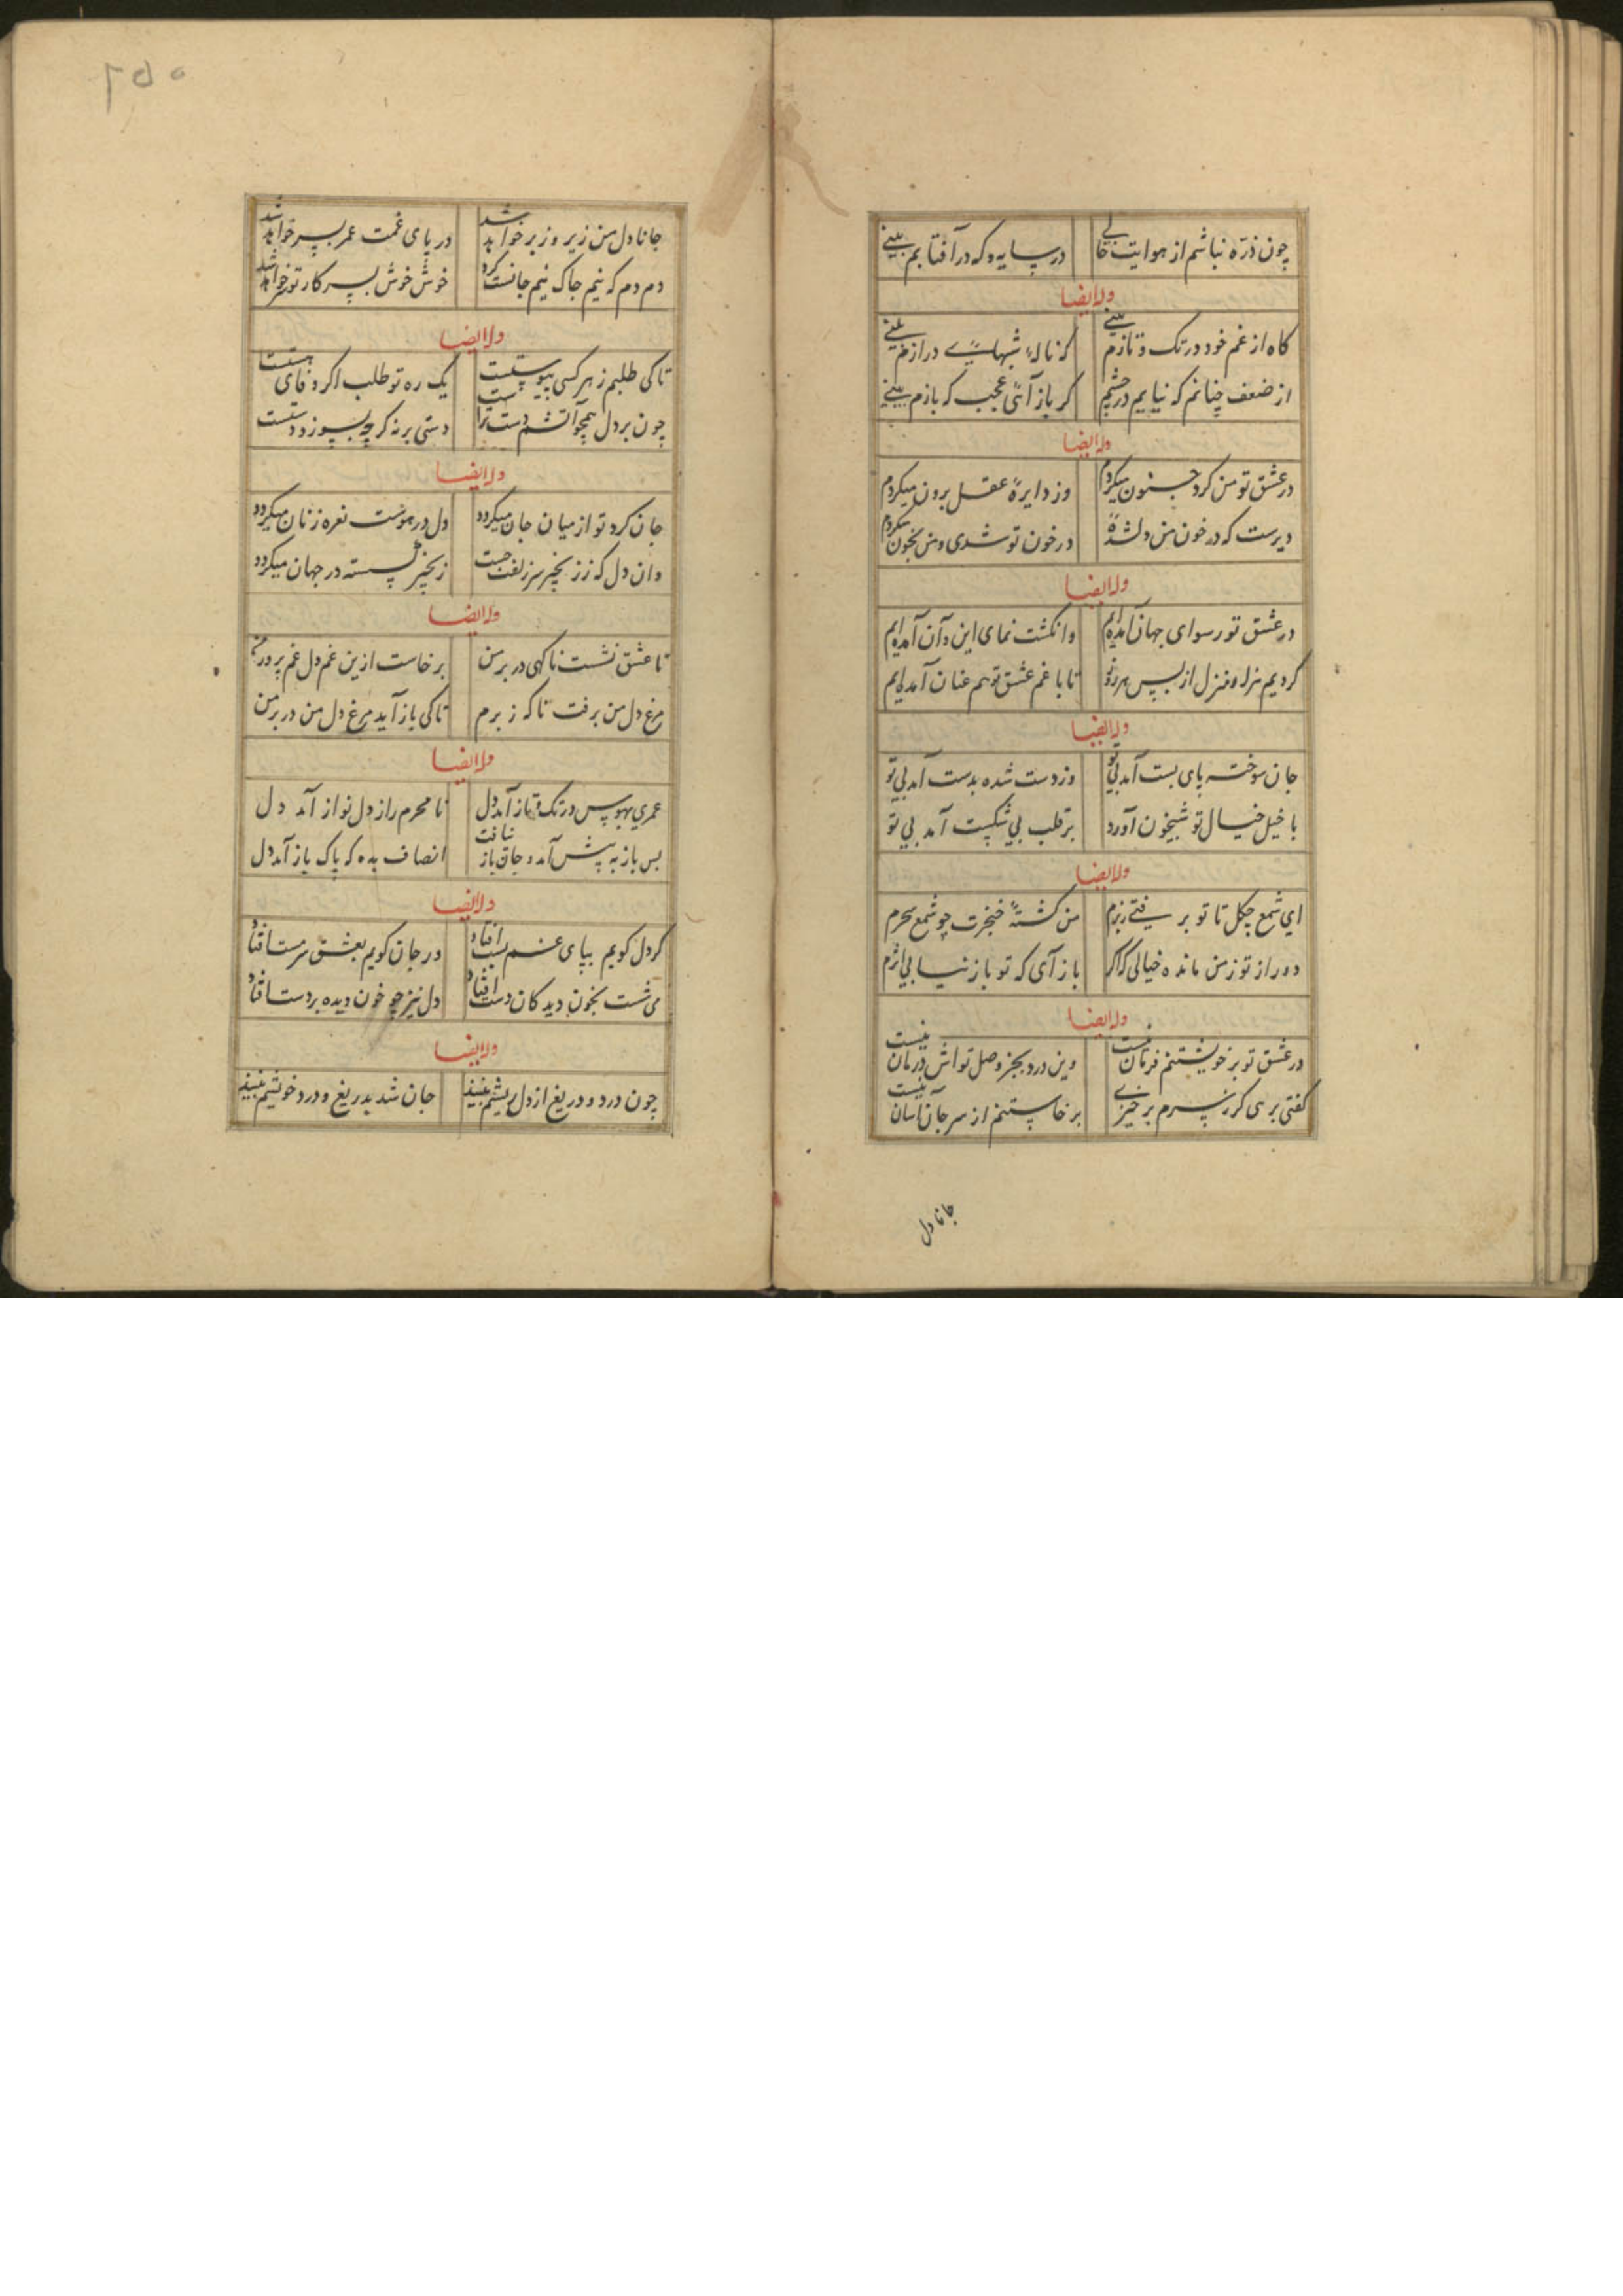 چون ذرّه نباشم از هوایت خالی در سایه و که در آفتابم بینی
وله ایضا
گاه از غم خود در تک و تازم بینی که نالهٔ شبهای درازم بینی
از ضعف چنانم که نیایم در چشم گر باز آئی عجب که بازم بینی
وله ایضا
در عشق تو من گرد جنون میگردم وز دایرهٔ عقل برون میگردم
دیرست که در خون من دلشدهٔ در خون تو شدی و من بخون میگردم
وله ایضا
در عشق تو رسوای جهان آمده‌ایم وانگشت نمای این و آن آمده‌ایم
کردیم هزار منزل از پس هر روز تا با غم عشق تو هم عنان آمده‌ایم
وله ایضا
جان سوخته پای بست آمد بی تو وز دست شده بدست آمد بی تو
با خیل خیال تو شبیخون آورد بر قلب بی شکست آمد بی تو
وله ایضا
ای شمع چگل تا تو برفتی ز برم من کشتهٔ خنجرت چو شمع سحرم
دور از تو ز من مانده خیالی که اگر باز آی که تو باز نیابی اثرم
وله ایضا
در عشق تو بر خویشتنم فرمان نیست وین درد بجز وصل تواش درمان نیست
گفتی برسی گر ز سرم برخیزی برخاستنم از سر جان آسان نیست
جانا دل
۲۵۵
جانا دل من زیر و زبر خواهد شد در پای غمت عمر بسر خواهد شد
دم دم که نیم جاک نیم جانست کرد خوش خوش بسر کار تو در خواهد شد
وله ایضا
تا کی طلبم ز هر کسی پیوستت یک ره تو طلب اگر وفای هستت
چون بر دل همچو آتشم دست تراست دستی برنه گرچه بسوزد دستت
وله ایضا
جان گرد تو از میان جان میگردد دل در هوست نعره زنان میگردد
وان دل که ز زنجیر سر زلفت جست زنجیر گسسته در جهان میگردد
وله ایضا
تا عشق نشست ناگهی در بر من برخاست ازین غم دل غم پرور من
مرغ دل من برفت ناگه ز برم تا کی باز آید مرغ دل من در بر من
وله ایضا
عمری بهوس در تک و تاز آمد دل تا محرم راز دلنواز آمد دل
بس باز به پیش آمد و جان باز نیافت انصاف بده که پاک باز آمد دل
وله ایضا
گر دل گویم بپای غم پست افتاد ور جان گویم بعشق سرمست افتاد
می شست بخون دیدگان دست افتاد دل نیز چو خون دیده بر دست افتاد
وله ایضا
چون درد و دریغ از دل ریشم نبیند جان شد بدریغ و درد خویشم نبیند